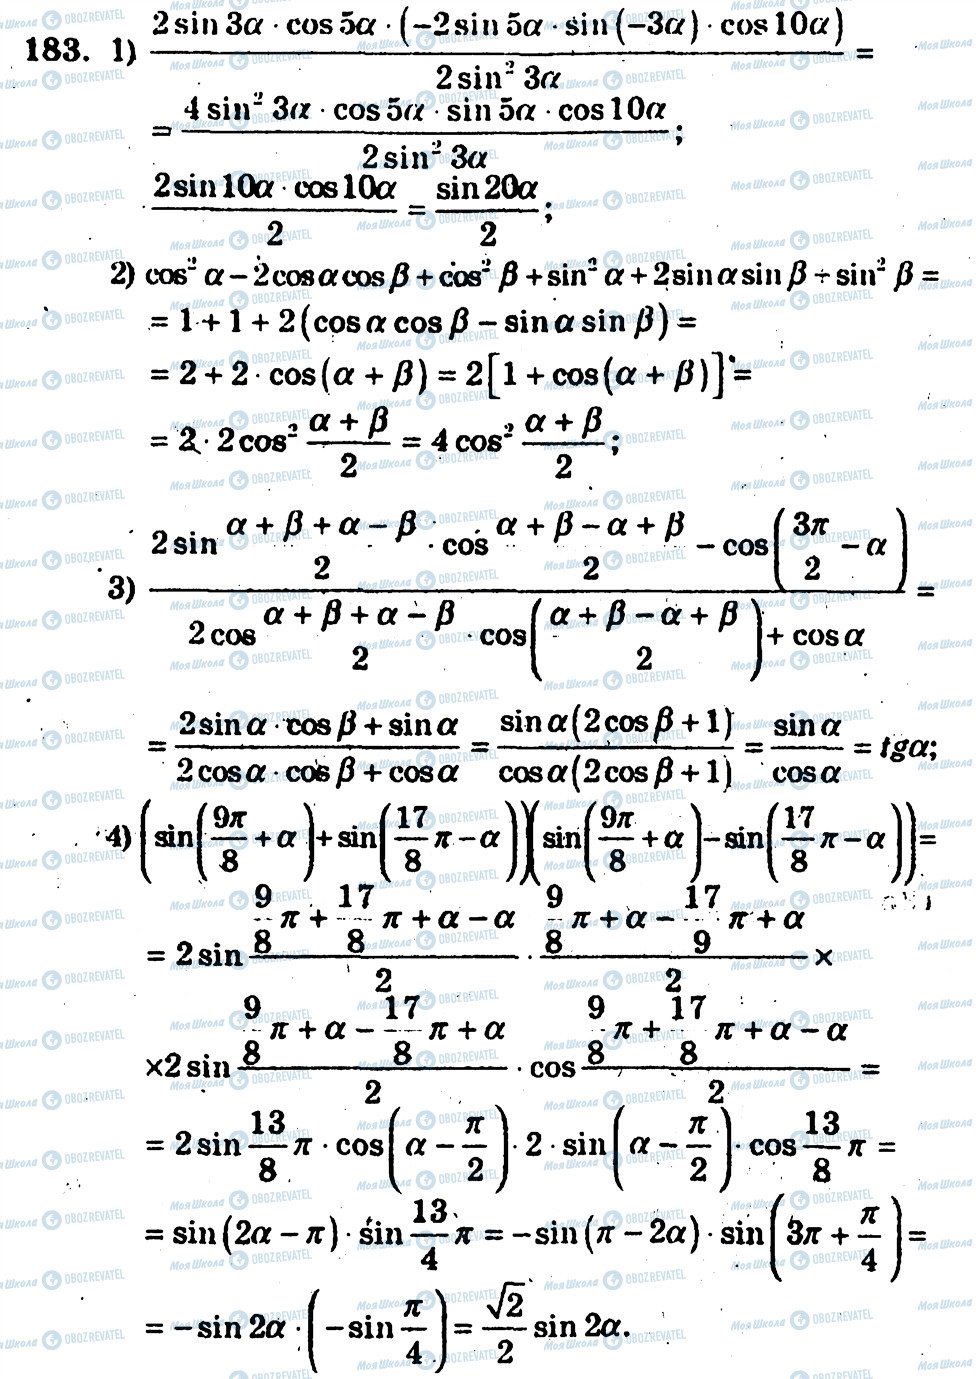 183. 1) \frac{2 sin 3α · cos 5α · (−2 sin 5α · sin(−3α) · cos 10α)}{2 sin² 3α} =
= \frac{4 sin² 3α · cos 5α · sin 5α · cos 10α}{2 sin² 3α};
\frac{2 sin 10α · cos 10α}{2} = \frac{sin 20α}{2};
2) cos² α − 2 cos α cos β + cos² β + sin² α + 2 sin α sin β + sin² β =
= 1 + 1 + 2(cos α cos β − sin α sin β) =
= 2 + 2 · cos(α + β) = 2[1 + cos(α + β)] =
= 2 · 2 cos² \frac{α + β}{2} = 4 cos² \frac{α + β}{2};
3) \frac{2 sin \frac{α + β + α − β}{2} · cos \frac{α + β − α + β}{2} − cos(\frac{3π}{2} − α)}{2 cos \frac{α + β + α − β}{2} · cos(\frac{α + β − α + β}{2}) + cos α} =
= \frac{2 sin α · cos β + sin α}{2 cos α · cos β + cos α} = \frac{sin α(2 cos β + 1)}{cos α(2 cos β + 1)} = \frac{sin α}{cos α} = tgα;
4) (sin(\frac{9π}{8} + α) + sin(\frac{17}{8} π − α))(sin(\frac{9π}{8} + α) − sin(\frac{17}{8} π − α)) =
= 2 sin \frac{\frac{9}{8} π + \frac{17}{8} π + α − α}{2} · \frac{\frac{9}{8} π + α − \frac{17}{9} π + α}{2} ×
×2 sin \frac{\frac{9}{8} π + α − \frac{17}{8} π + α}{2} · cos \frac{\frac{9}{8} π + \frac{17}{8} π + α − α}{2} =
= 2 sin \frac{13}{8} π · cos(α − \frac{π}{2}) · 2 · sin(α − \frac{π}{2}) · cos \frac{13}{8} π =
= sin(2α − π) · sin \frac{13}{4} π = −sin(π − 2α) · sin(3π + \frac{π}{4}) =
= −sin 2α · (−sin \frac{π}{4}) = \frac{√2}{2} sin 2α.